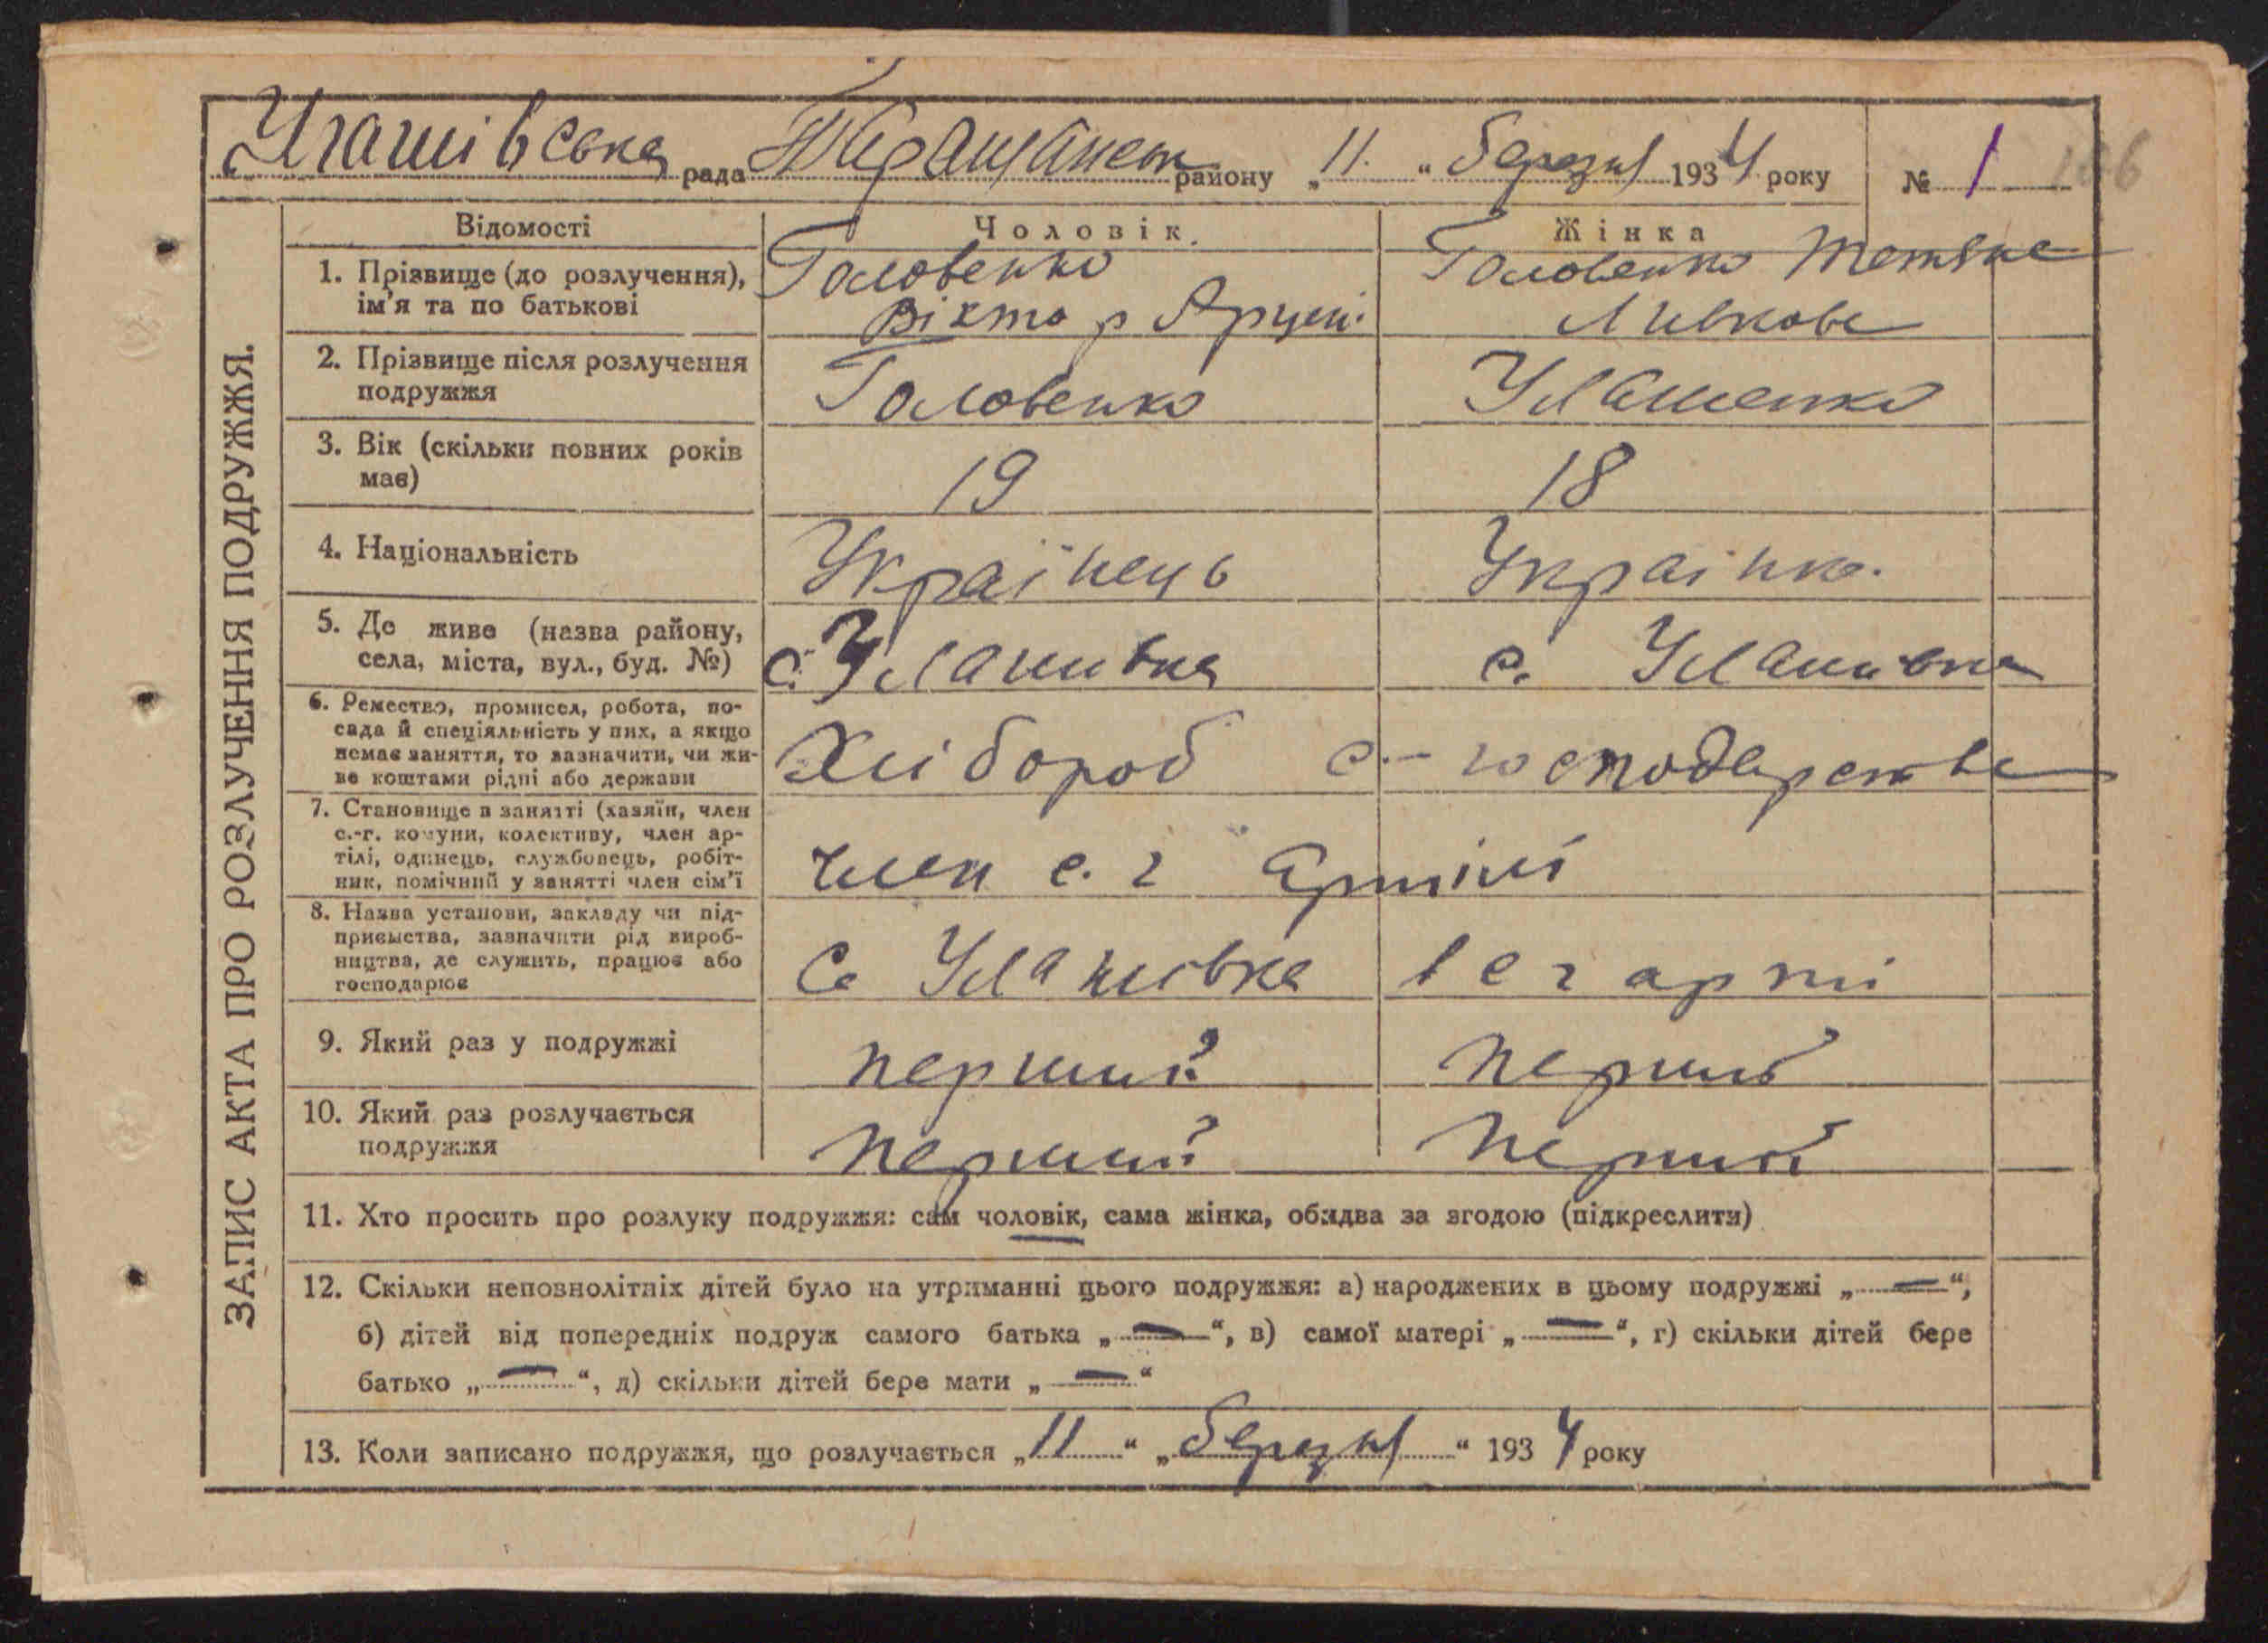 рада району „11.“ березня 1934 року № 1
166
ЗАПИС АКТА ПРО РОЗЛУЧЕННЯ ПОДРУЖЖЯ.
Відомості Чоловік. Жінка
1. Прізвище (до розлучення), ім'я та по батькові
Головенко
Віктор
Головенко Тетяна
2. Прізвище після розлучення подружжя
Головенко
3. Вік (скільки повних років має)
19 18
4. Національність
Українець Українка.
5. Де живе (назва району, села, міста, вул., буд. №)
с. Улашивка с. Улашивка
6. Ремество, промисел, робота, по-
сада й спеціяльність у них, а якщо
немає заняття, то зазначити, чи жи-
ве коштами рідні або держави
Хлібороб с.-господарства
7. Становище в занятті (хазяїн, член
с.-г. комуни, колективу, член ар-
тілі, одинець, службовець, робіт-
ник, помічний у занятті член сім'ї
член с. г артілі
8. Назва установи, закладу чи під-
приємства, зазначити рід вироб-
ництва, де служить, працює або
господарює
С Улашивка в с г арті
9. Який раз у подружжі
перший перший
10. Який раз розлучається
подружжя
перший перший
11. Хто просить про розлуку подружжя: сам чоловік, сама жінка, обидва за згодою (підкреслити)
12. Скільки неповнолітніх дітей було на утриманні цього подружжя: а) народжених в цьому подружжі „—“,
б) дітей від попередніх подруж самого батька „—“, в) самої матері „—“, г) скільки дітей бере
батько „—“, д) скільки дітей бере мати „—“
13. Коли записано подружжя, що розлучається „11“ „березня“ 1934 року